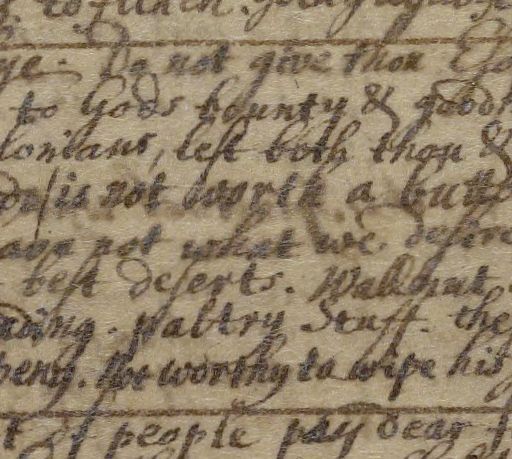 not give thou
to Gods bounty & good
lonians, lest both thou &
is not worth a butt
not what we desire
best deserts. Walnut
paltry Stuff. the
not worthy to wipe his
of people pay dear